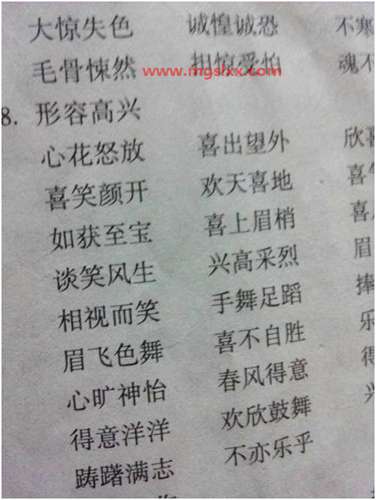 大惊失色 诚惶诚恐 不寒
毛骨悚然 担惊受怕 魂不
www.mgslxx.com
8. 形容高兴
心花怒放 喜出望外 欣喜
喜笑颜开 欢天喜地 喜
如获至宝 喜上眉梢 喜
谈笑风生 兴高采烈 眉
相视而笑 手舞足蹈 捧
眉飞色舞 喜不自胜 乐
心旷神怡 春风得意 得
得意洋洋 欢欣鼓舞
踌躇满志 不亦乐乎